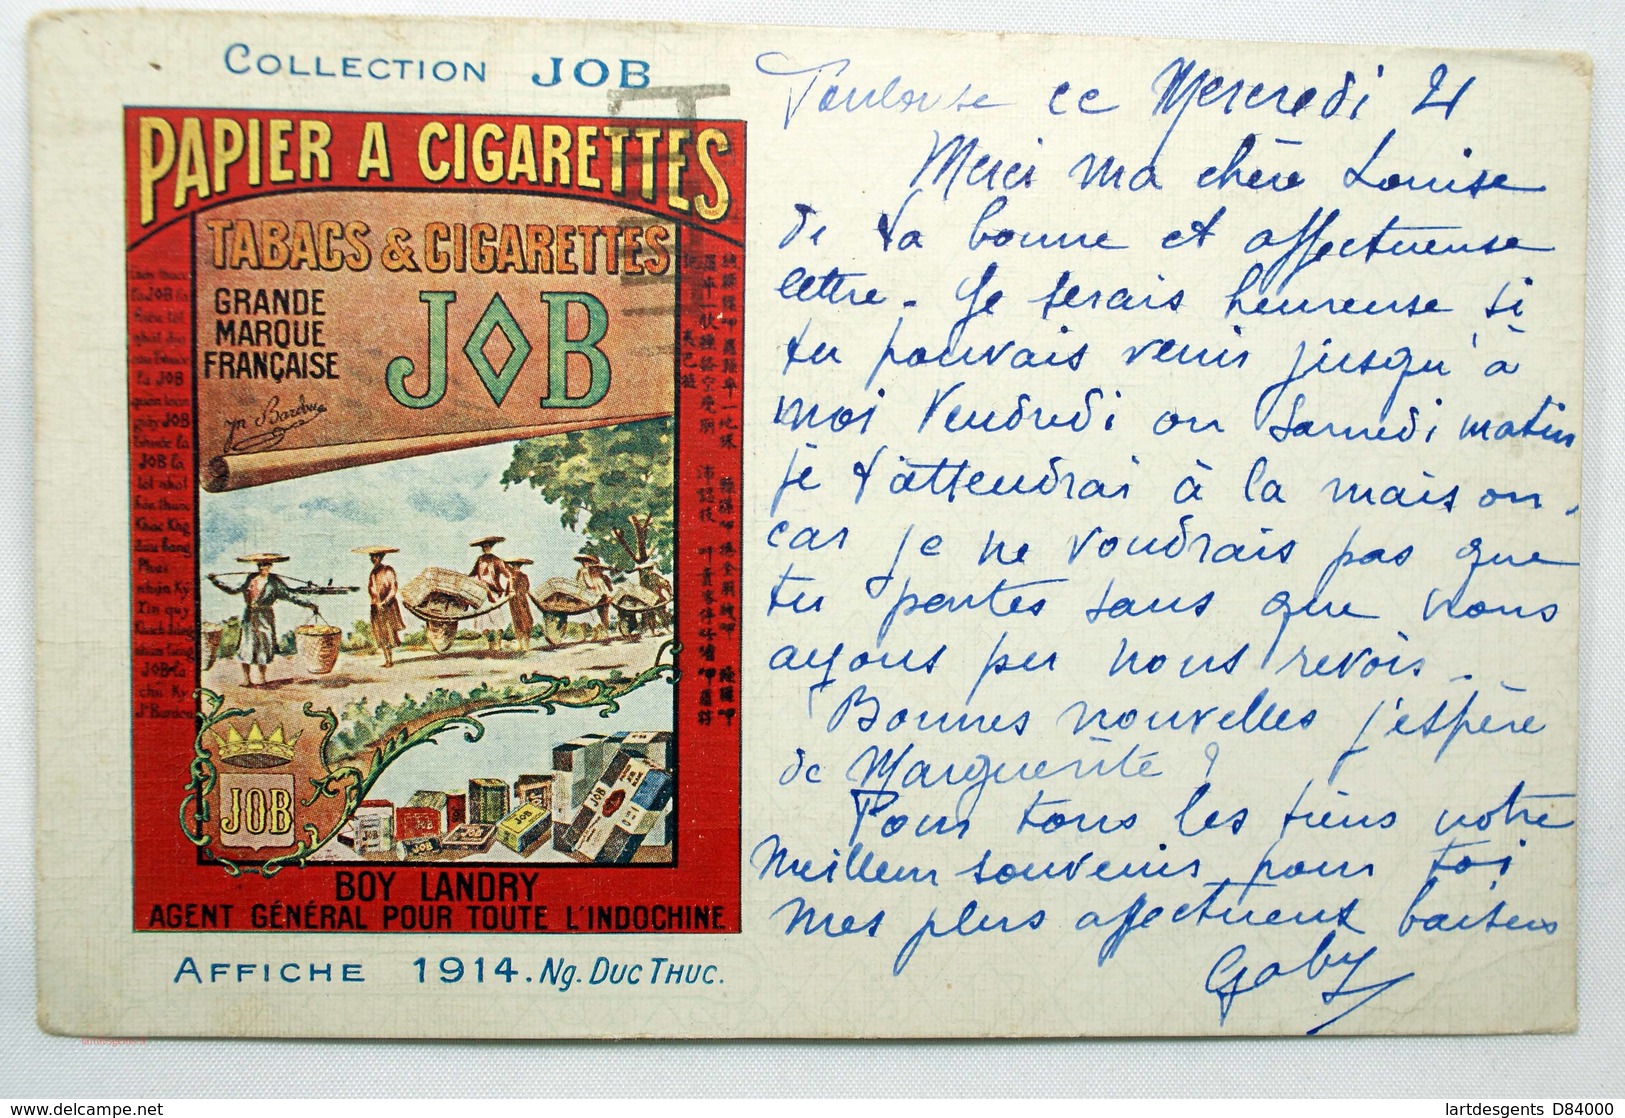 COLLECTION JOB
PAPIER A CIGARETTES
TABACS & CIGARETTES
GRANDE
MARQUE
FRANÇAISE
JOB
Jn Bardou
JOB
BOY LANDRY
AGENT GÉNÉRAL POUR TOUTE L'INDOCHINE
AFFICHE 1914. Ng. DUC THUC.
Toulouse ce Mercredi 21
Merci ma chère Louise
de ta bonne et affectueuse
lettre. Je serais heureuse si
tu pouvais venir jusqu'à
moi Vendredi ou Samedi matin
je t'attendrai à la maison,
car je ne voudrais pas que
tu partes sans que nous
ayons pu nous revoir.
Bonnes nouvelles j'espère
de Marguerite ?
Pour tous les tiens notre
meilleur souvenir, pour toi
mes plus affectueux baisers
Gaby
lartdesgents D84000